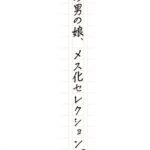 の男の娘、メス化セレクション